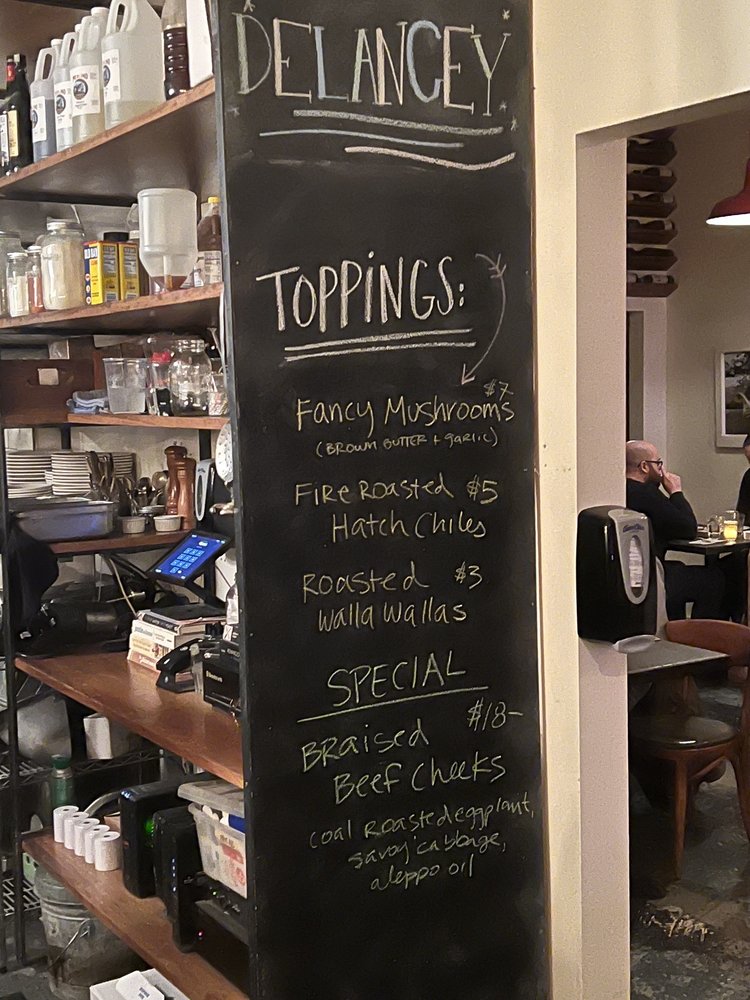 DELANCEY
TOPPINGS:
$7
Fancy Mushrooms
(BROWN BUTTER + garlic)
FIRE ROASTED $5
Hatch Chiles
ROASTED $3
Walla Wallas
SPECIAL
BRaised $18-
Beef Cheeks
coal Roasted eggplant,
savoy cabbage,
aleppo oil